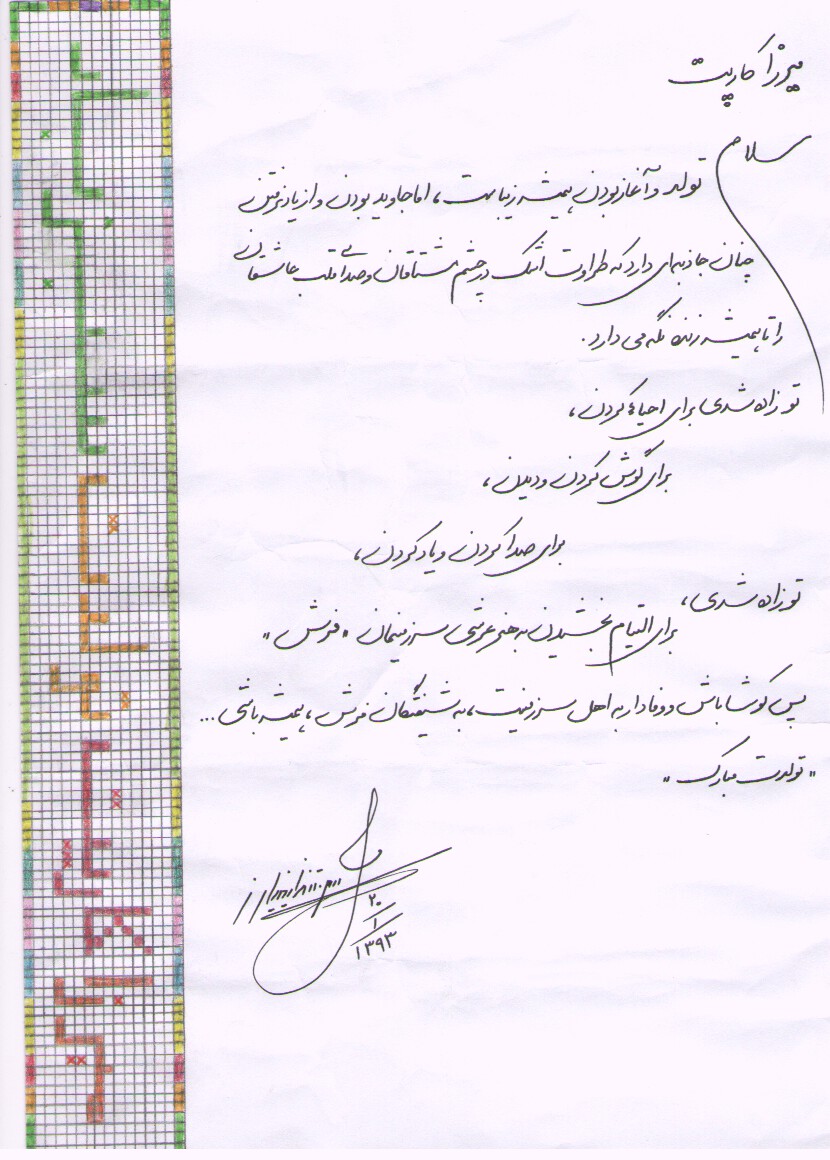 میرزا کارپت
سلام
تولد و آغاز بودن همیشه زیباست، اما جاوید بودن و از یاد نرفتن
چنان جاذبه‌ای دارد که طراوت اشک در چشم مشتاقان و صدا قلب عاشقان
را تا همیشه زنده نگه می دارد.
تو زاده شدی برای احیاء کردن،
برای گوش کردن و دیدن،
برای صدا کردن و یاد کردن،
تو زاده شدی،
برای التیام بخشیدن به هنر عرشی سرزمینمان "فرش"
پس کوشا باش و وفادار به اهل سرزمینت، به شیفتگان فرش، همیشه باشی...
"تولدت مبارک"
۲۰
۱
۱۳۹۳